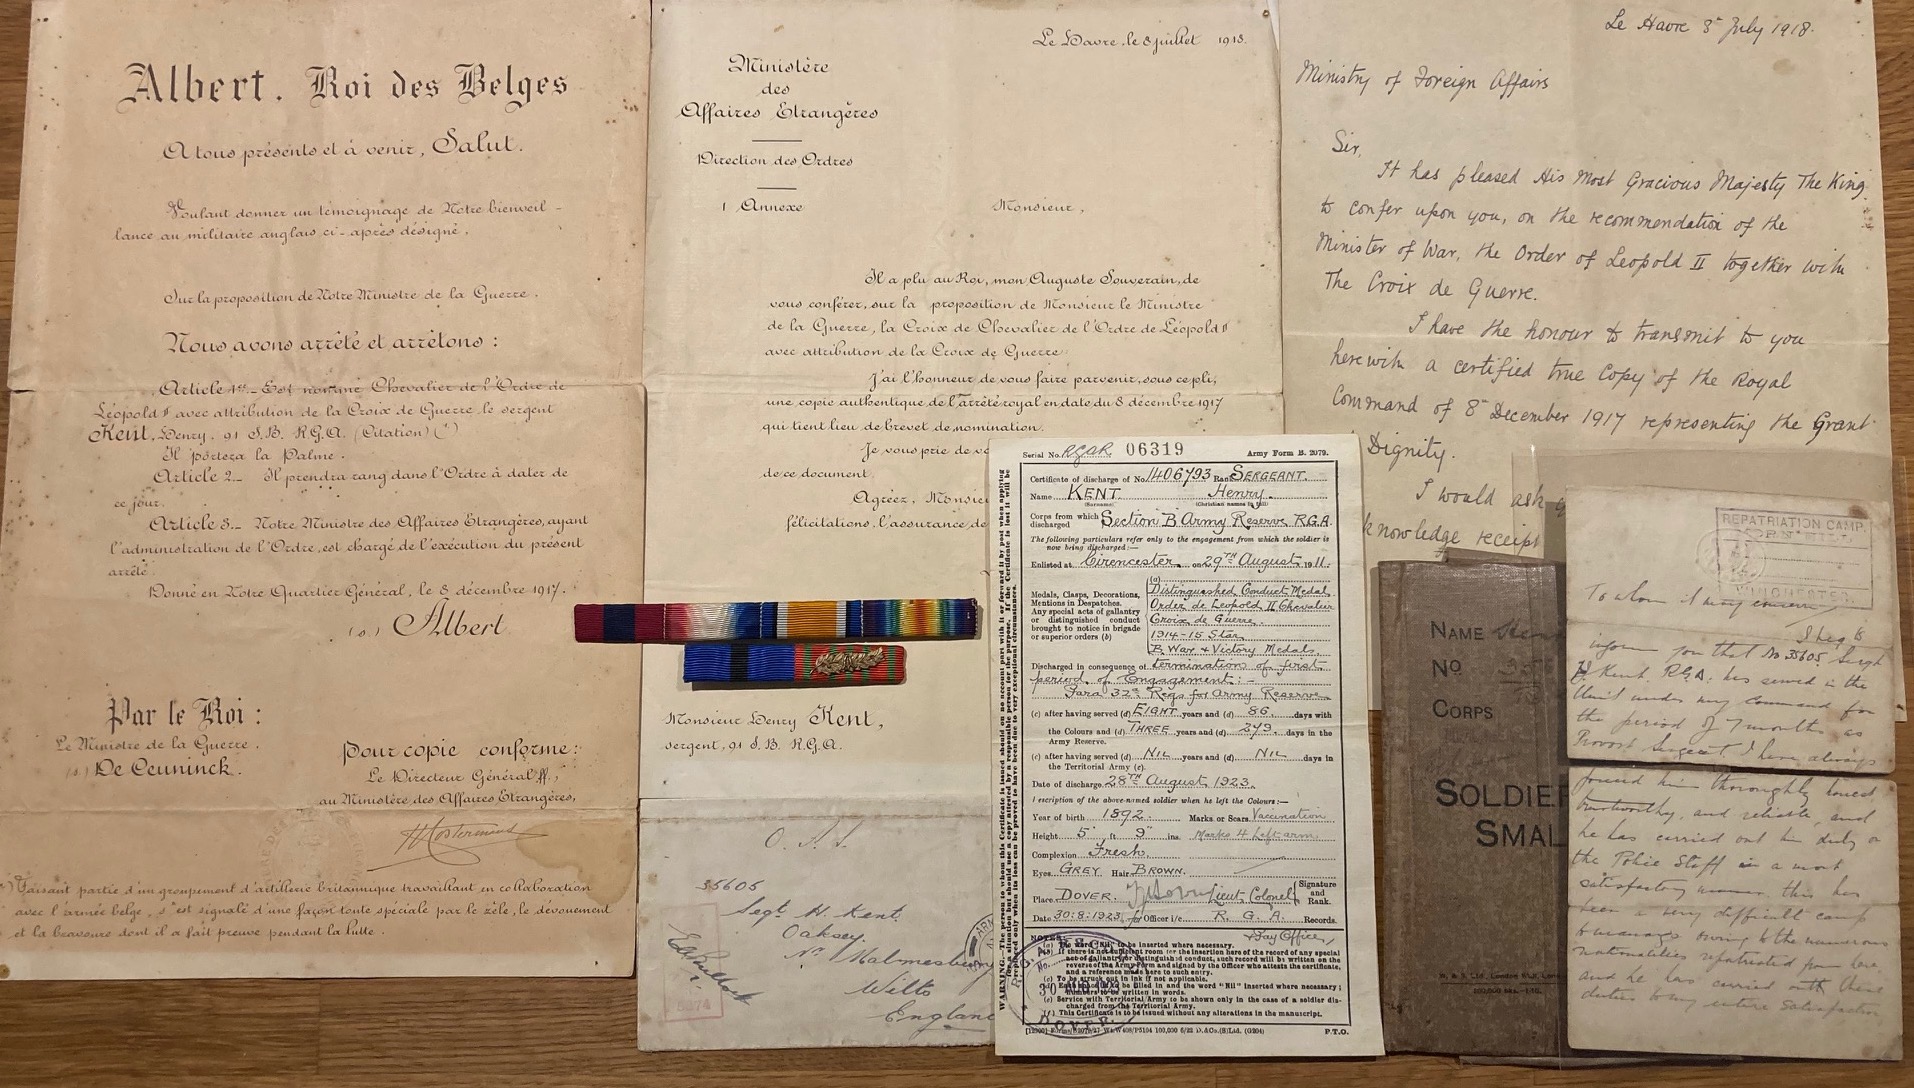 Albert. Roi des Belges
A tous présents et à venir, Salut.
Voulant donner un témoignage de Notre bienveil-
lance au militaire anglais ci-après désigné,
Sur la proposition de Notre Ministre de la Guerre,
Nous avons arrêté et arrêtons :
Article 1er_ Est nommé Chevalier de l'Ordre de
Léopold II avec attribution de la Croix de Guerre, le sergent
Kent, Henry, 91 S.B. R.G.A. (Citation) (*)
Il portera la Palme.
Article 2_ Il prendra rang dans l'Ordre à dater de
ce jour.
Article 3_ Notre Ministre des Affaires Etrangères, ayant
l'administration de l'Ordre, est chargé de l'exécution du présent
arrêté.
Donné en Notre Quartier Général, le 8 décembre 1917.
(s.) Albert
Par le Roi :
Le Ministre de la Guerre.
(s.) De Ceuninck.
Pour copie conforme :
Le Directeur Général ff.,
au Ministère des Affaires Etrangères,
Faisant partie d'un groupement d'artillerie britannique travaillant en collaboration
avec l'armée belge, s'est signalé d'une façon toute spéciale par le zèle, le dévouement
et la bravoure dont il a fait preuve pendant la lutte.
Le Havre, le 8 juillet 1918.
Ministère
des
Affaires Etrangères
Direction des Ordres
1 Annexe
Monsieur,
Il a plu au Roi, mon Auguste Souverain, de
vous conférer, sur la proposition de Monsieur le Ministre
de la Guerre, la Croix de Chevalier de l'Ordre de Léopold II
avec attribution de la Croix de Guerre.
J'ai l'honneur de vous faire parvenir, sous ce pli,
une copie authentique de l'arrêté royal en date du 8 décembre 1917
qui tient lieu de brevet de nomination.
Je vous prie de vo
de ce document.
Agréez, Monsie
félicitations, l'assurance de
Monsieur Henry Kent,
sergent, 91 S.B. R.G.A.
O.A.S.
35605
Segt H. Kent.
Oaksey.
Nr Malmesbury
Wilts
England
5374
Le Havre 8th July 1918.
Ministry of Foreign Affairs
Sir,
It has pleased His Most Gracious Majesty The King.
to confer upon you, on the recommendation of the
Minister of War, the Order of Leopold II together with
The Croix de Guerre.
I have the honour to transmit to you
herewith a certified true copy of the Royal
Command of 8th December 1917 representing the Grant
Dignity.
I would ask
knowledge receipt
Serial No. RGAR 06319 Army Form B. 2079.
WARNING.—
Certificate of discharge of No. 1406793 Rank SERGEANT.
Name KENT. Henry.
(Surname) (Christian names in full)
Corps from which discharged Section B Army Reserve R.G.A.
The following particulars refer only to the engagement from which the soldier is
now being discharged:—
Enlisted at Cirencester on 29TH August 1911.
Medals, Clasps, Decorations,
Mentions in Despatches.
Any special acts of gallantry
or distinguished conduct
brought to notice in brigade
or superior orders (b)
(a)
Distinguished Conduct Medal
Order de Leopold II Chevalier
Croix de Guerre.
1914-15 Star
B. War & Victory Medals.
Discharged in consequence of termination of first
period of Engagement:-
Para 32a Regs for Army Reserve
(c) after having served (d) EIGHT years and (d) 86. days with
the Colours and (d) THREE years and (d) 279 days in the
Army Reserve.
(c) after having served (d) NIL years and (d) NIL days in
the Territorial Army (c).
Date of discharge 28TH August 1923.
Description of the above-named soldier when he left the Colours:—
Year of birth 1892. Marks or Scars Vaccination
Height 5' ft 9" ins. Marks 4 Left arm.
Complexion Fresh.
Eyes GREY Hair BROWN.
Place DOVER. Lieut Colonel Signature and Rank.
Date 30:8:1923 for Officer i/c R. G. A. Records.
& Pay Office,
NOTES:—
(a) The word "Nil" to be inserted where necessary.
(c) To be struck out in ink if not applicable.
(e) Service with Territorial Army to be shown only in the case of a soldier dis-
charged from the Territorial Army.
(f) This Certificate is to be issued without any alterations in the manuscript.
P.T.O.
DOVER.
NAME
No
CORPS
SOLDIER
SMAL
REPATRIATION CAMP.
WINCHESTER.
To whom it may concern
I beg to
inform you that No 35605 Sergt
H Kent. R.G.A. has served in the
Unit under my command for
the period of 7 months as
Provost Sergeant. I have always
found him thoroughly honest
trustworthy, and reliable, and
he has carried out his duty on
the Police Staff in a most
satisfactory manner, this has
been a very difficult camp
to manage owing to the numerous
nationalities repatriated from here
and he has carried out these
duties to my entire satisfaction